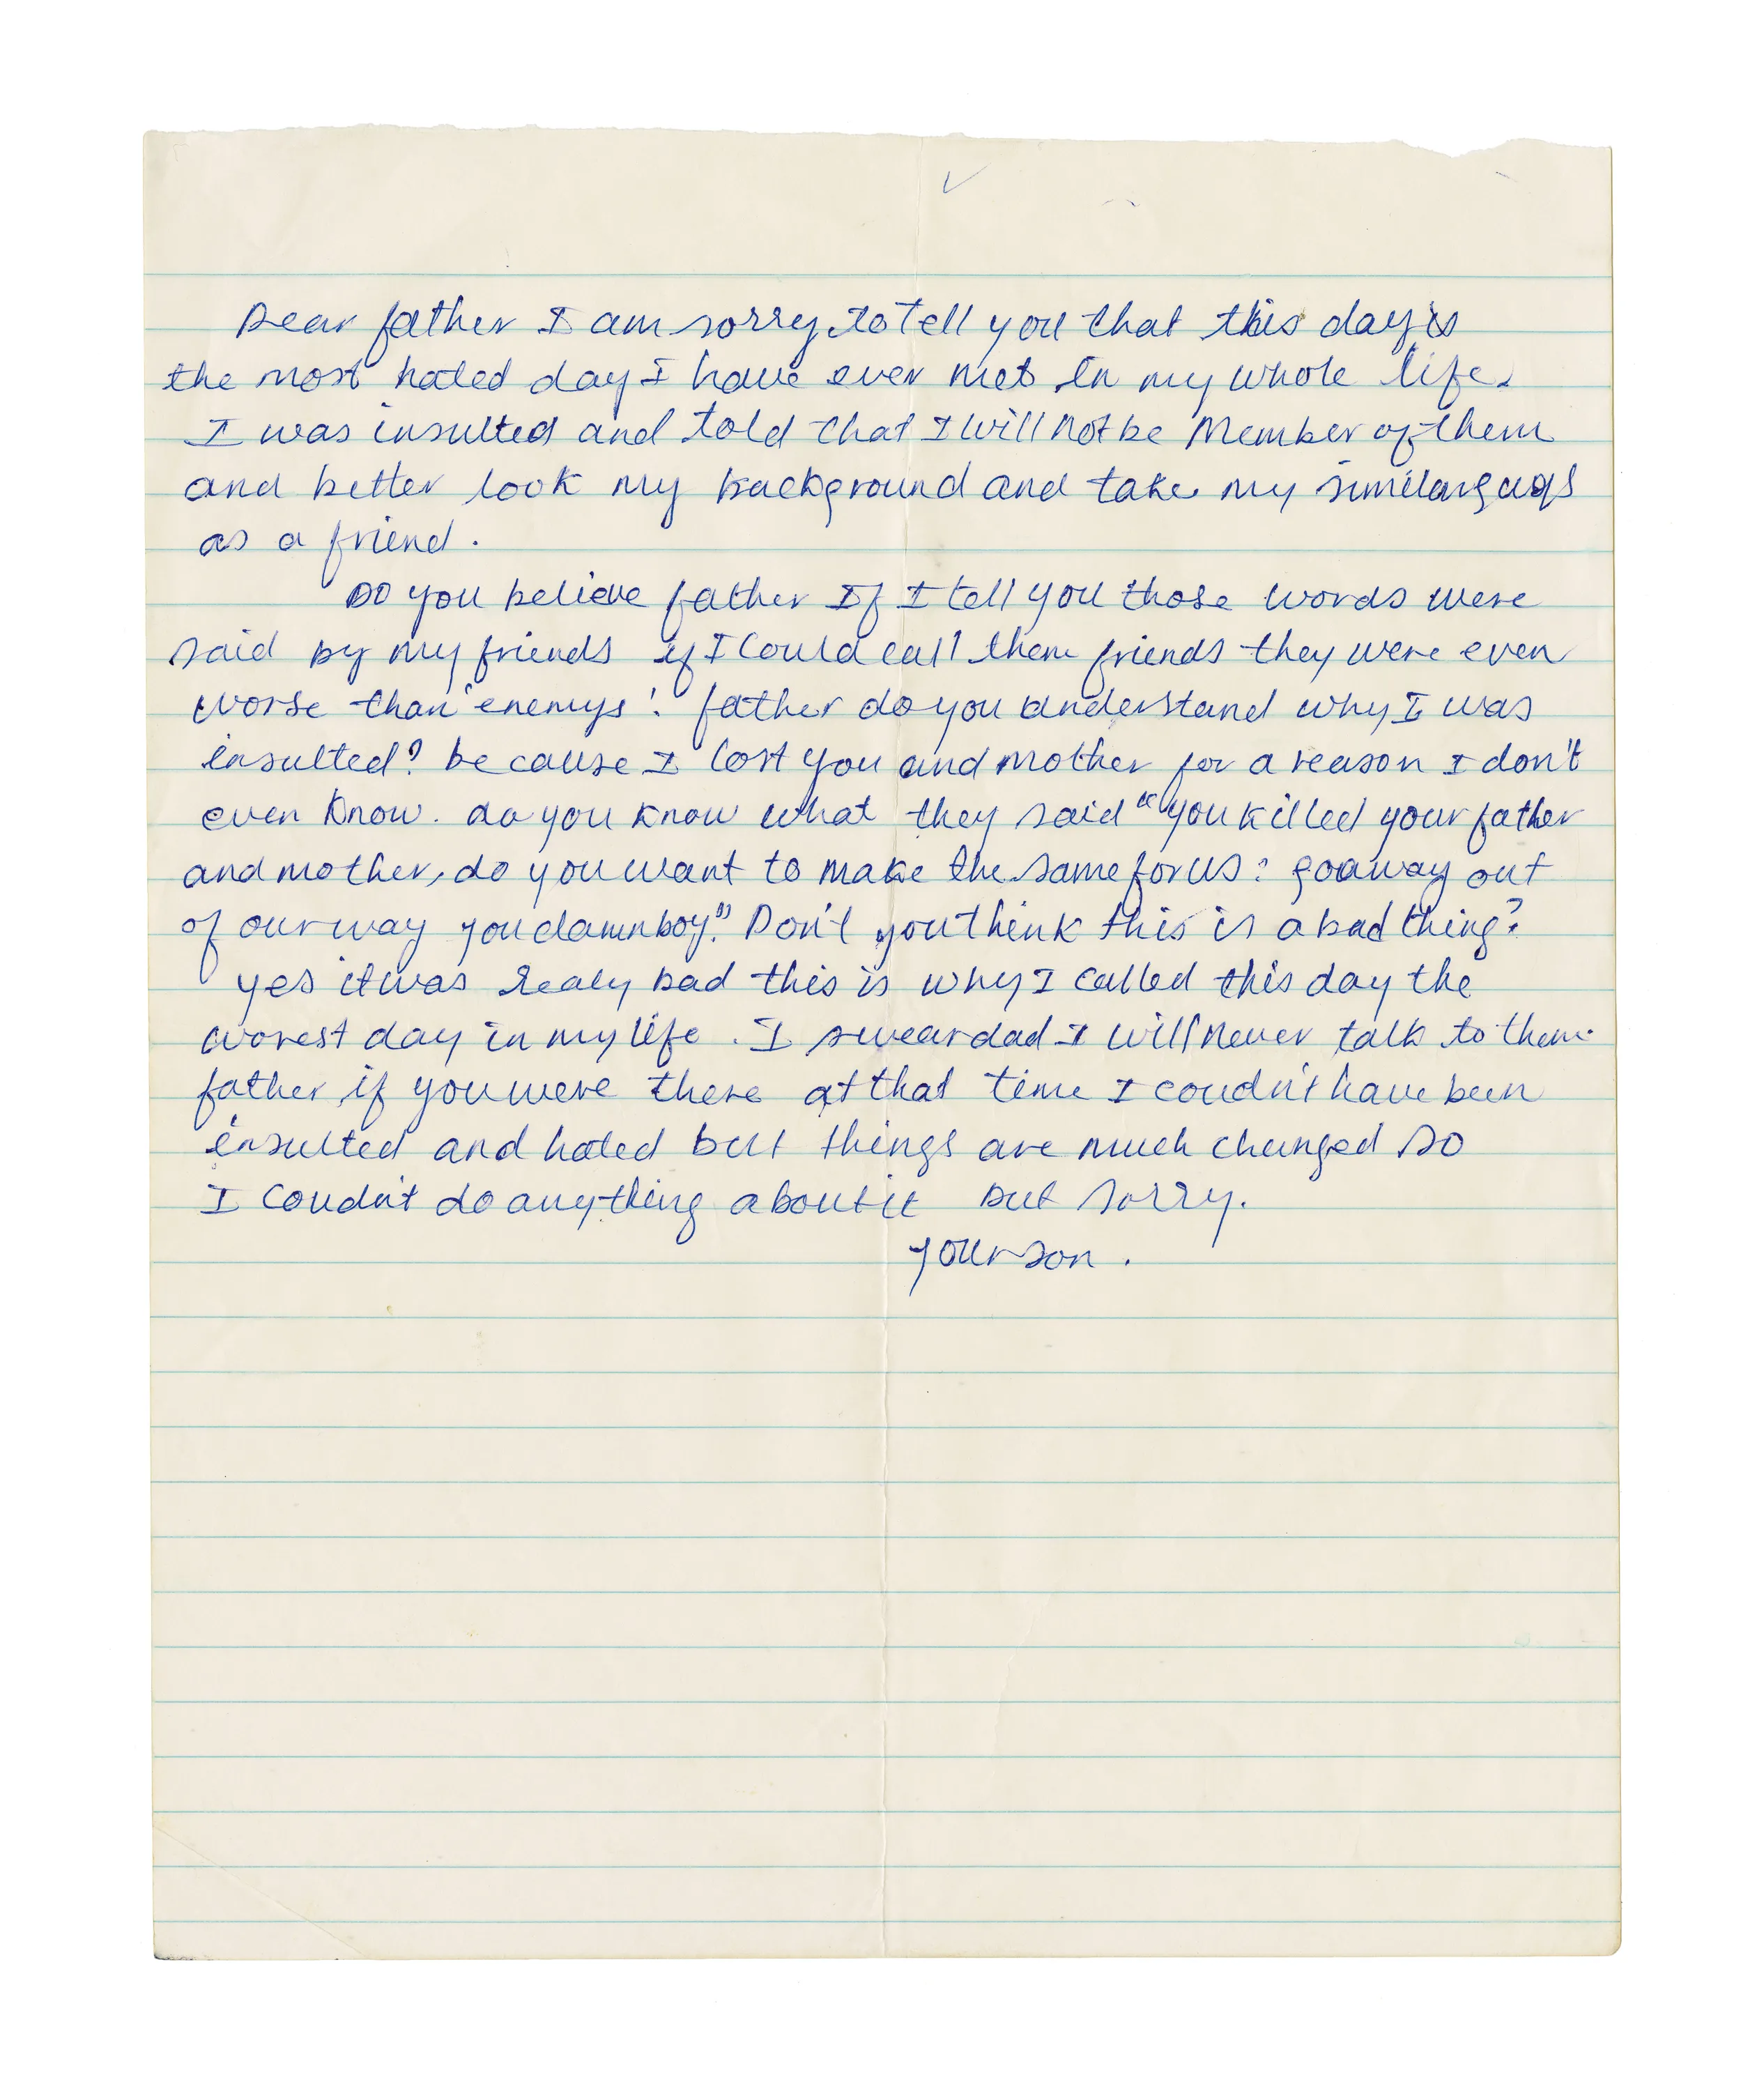 Dear father I am sorry to tell you that this day is
the most hated day I have ever met in my whole life.
I was insulted and told that I will not be Member of them
and better look my background and take my similar
as a friend.
Do you believe father If I tell you those words were
said by my friends if I could call them friends they were even
worse than enemys! father do you understand why I was
insulted? because I lost you and mother for a reason I don't
even know. do you know what they said "you killed your father
and mother, do you want to make the same for us? go away out
of our way you damn boy." Don't you think this is a bad thing?
yes it was realy bad this is why I called this day the
worest day in my life. I swear dad I will never talk to them.
father if you were there at that time I coudn't have been
insulted and hated but things are much changed so
I coudn't do anything about it but sorry.
your son.